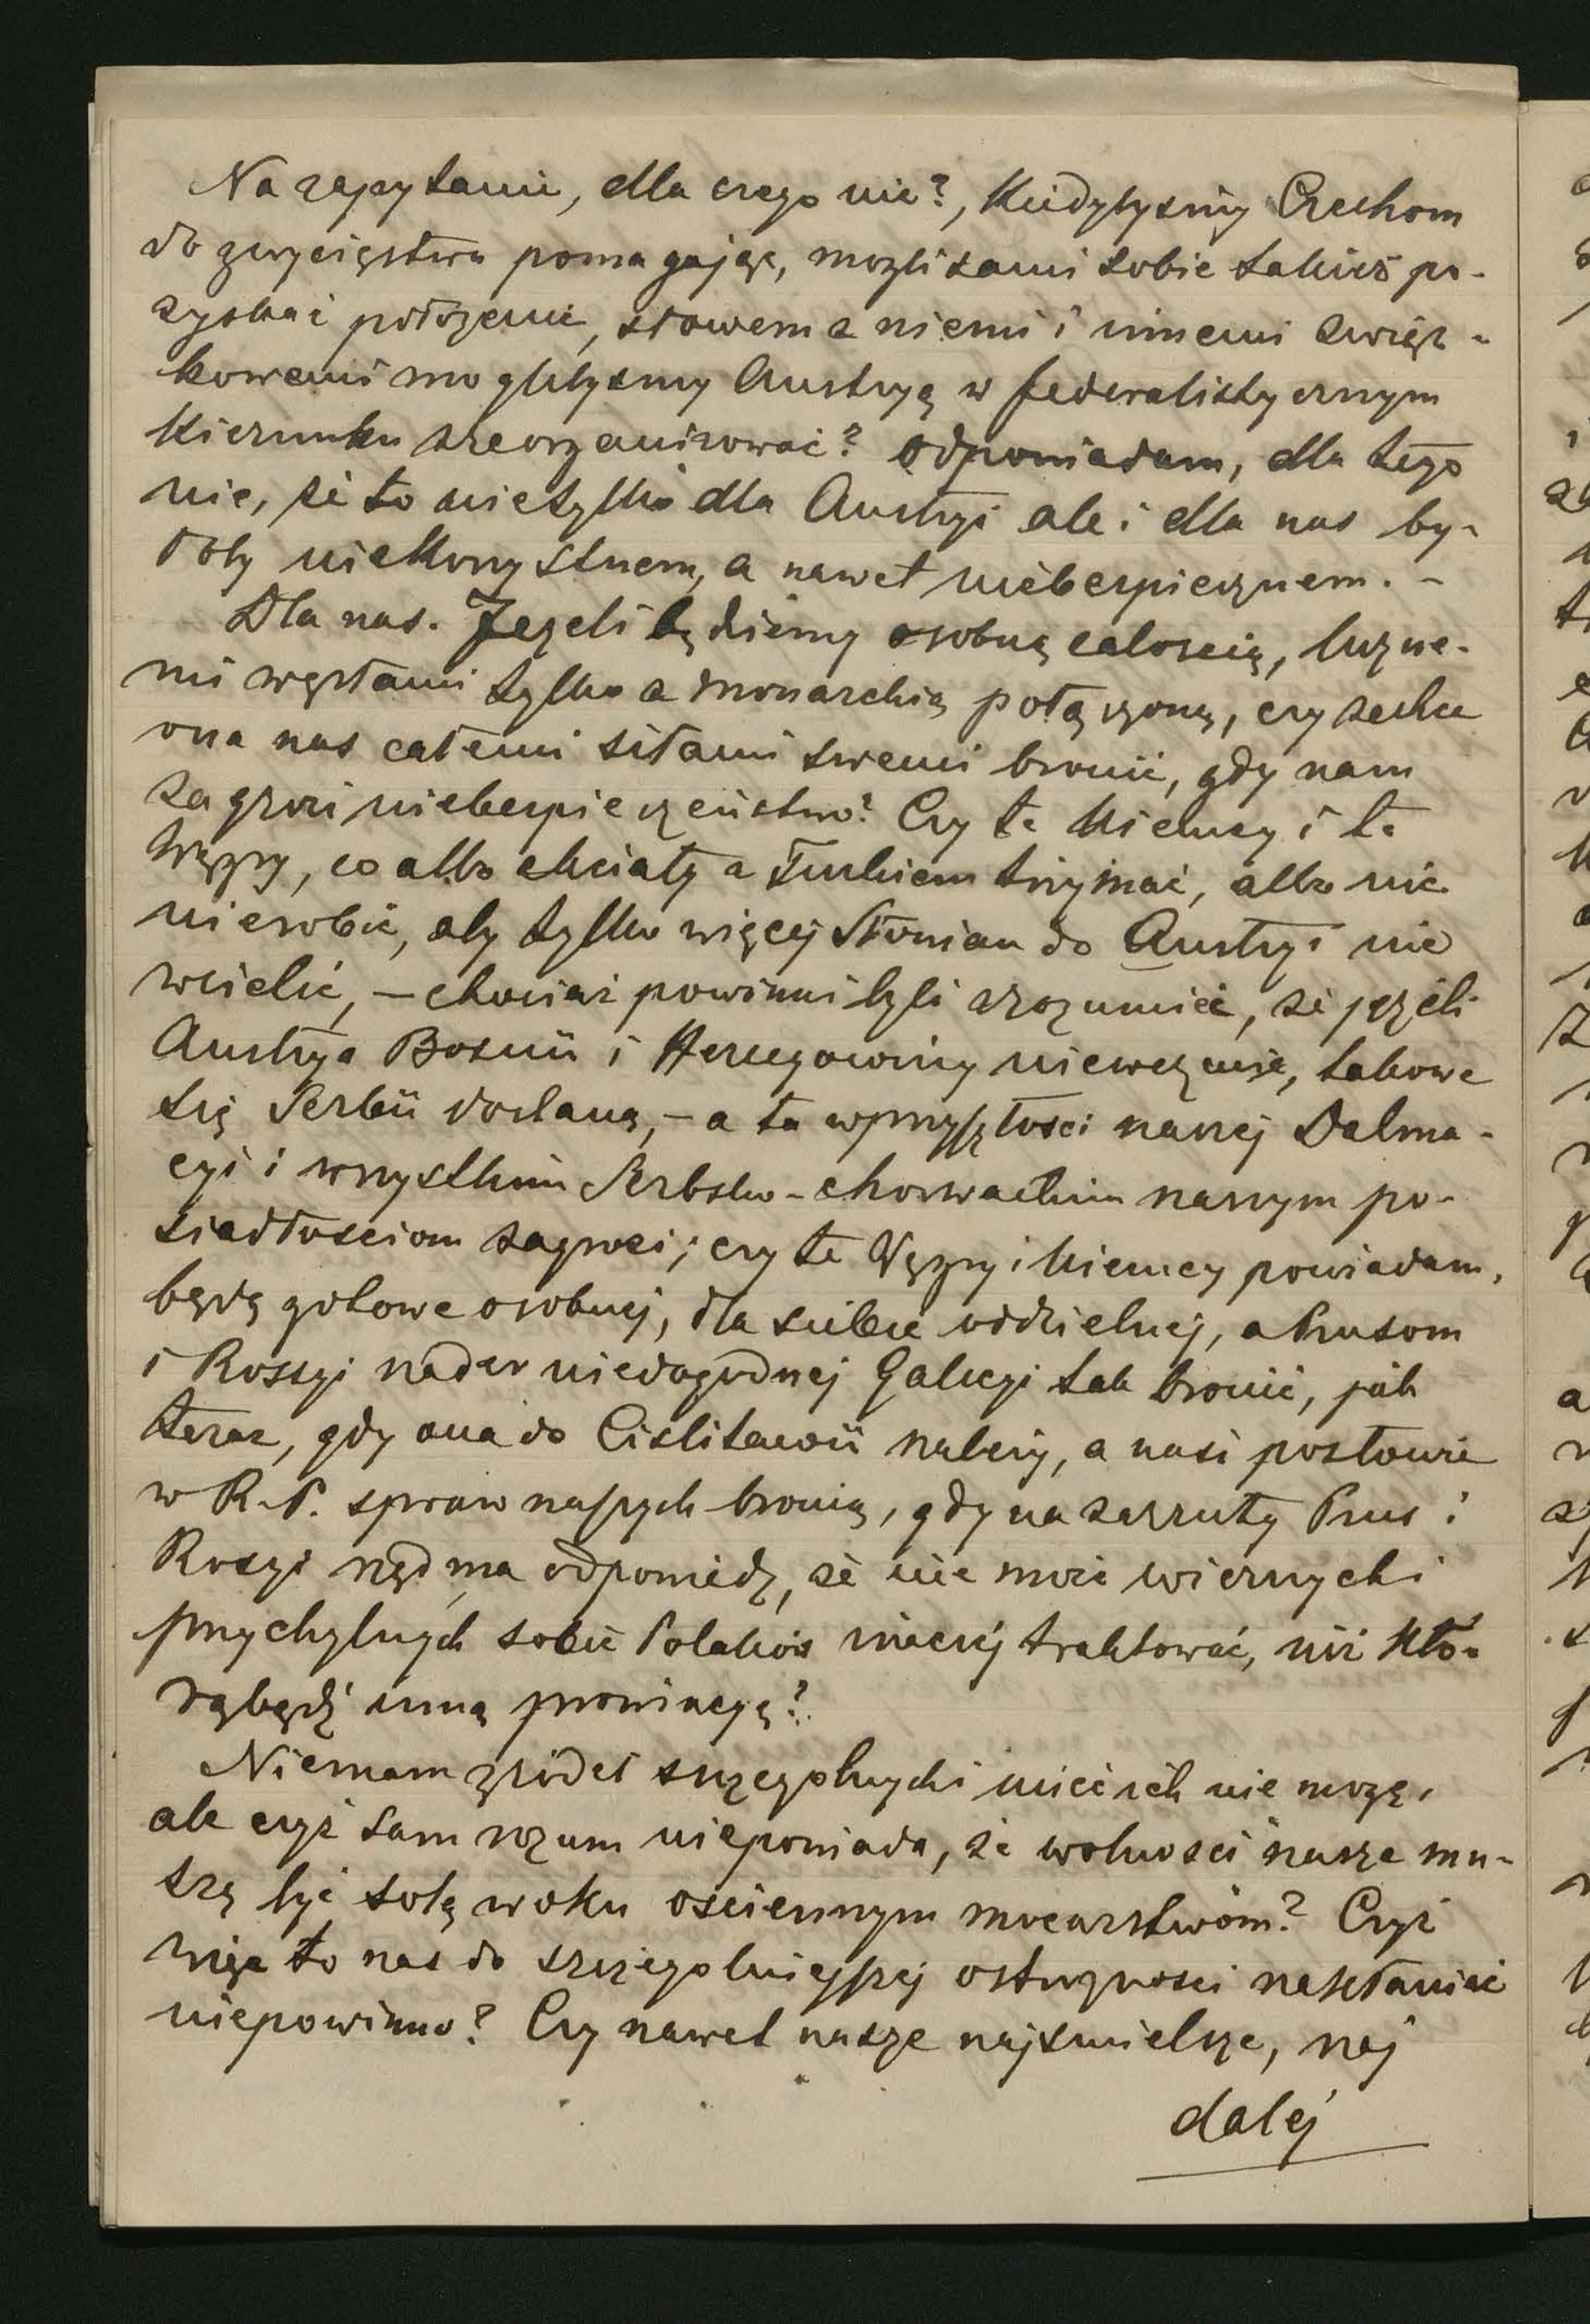 Na zapytanie, dla czego nie?, kiedybyśmy Czechom
do zwycięstwa pomagając, mogli sami sobie takież po-
zyskać położenie, słowem z niemi i innemi związ-
kowemi moglibyśmy Austryą w federalistycznym
kierunku zreorganizować? Odpowiadam, dla tego
nie, że to nietylko dla Austryi ale i dla nas by-
łoby niekorzystnem, a nawet niebezpiecznem. -
Dla nas. Jeżeli będziemy osobną całością, luźne-
mi węzłami tylko z Monarchią połączoną, czy zechce
ona nas całemi siłami swemi bronić, gdy nam
zagrozi niebezpieczeństwo? Czy te Niemcy i te
Węgry, co albo chciały z Turkiem trzymać, albo nic
nierobić, aby tylko więcej Słowian do Austryi nie
wcielić, - chociaż powinni byli zrozumieć, że jeżeli
Austrya Bosnii i Hercegowiny niewezmie, takowe
się Serbii dostaną, - a ta w przyszłości naszej Dalma-
cyi i wszystkim Serbsko-chorwackim naszym po-
siadłościom zagrozi; czy te Węgry i Niemcy powiadam,
będą gotowe osobnej, dla siebie oddzielnej, a Prusom
i Rossyi nader niedogodnej Galicyi tak bronić, jak
teraz, gdy ona do Cislitawii należy, a nasi posłowie
w R.P. spraw naszych bronią, gdy na zarzuty Prus i
Rosyi rząd ma odpowiedź, że nie może wiernych i
przychylnych sobie Polaków inaczej traktować, niż któ-
rąbądź inną prowincyę?
Niemam źródeł szczególnych i mieć ich nie mogę,
ale czyż sam rozum niepowiada, że wolności nasze mu-
szą być solą w oku ościennym mocarstwom? Czyż
więc to nas do szczególniejszej ostrożności nakłaniać
niepowinno? Czy nawet nasze najśmielsze, naj
dalej